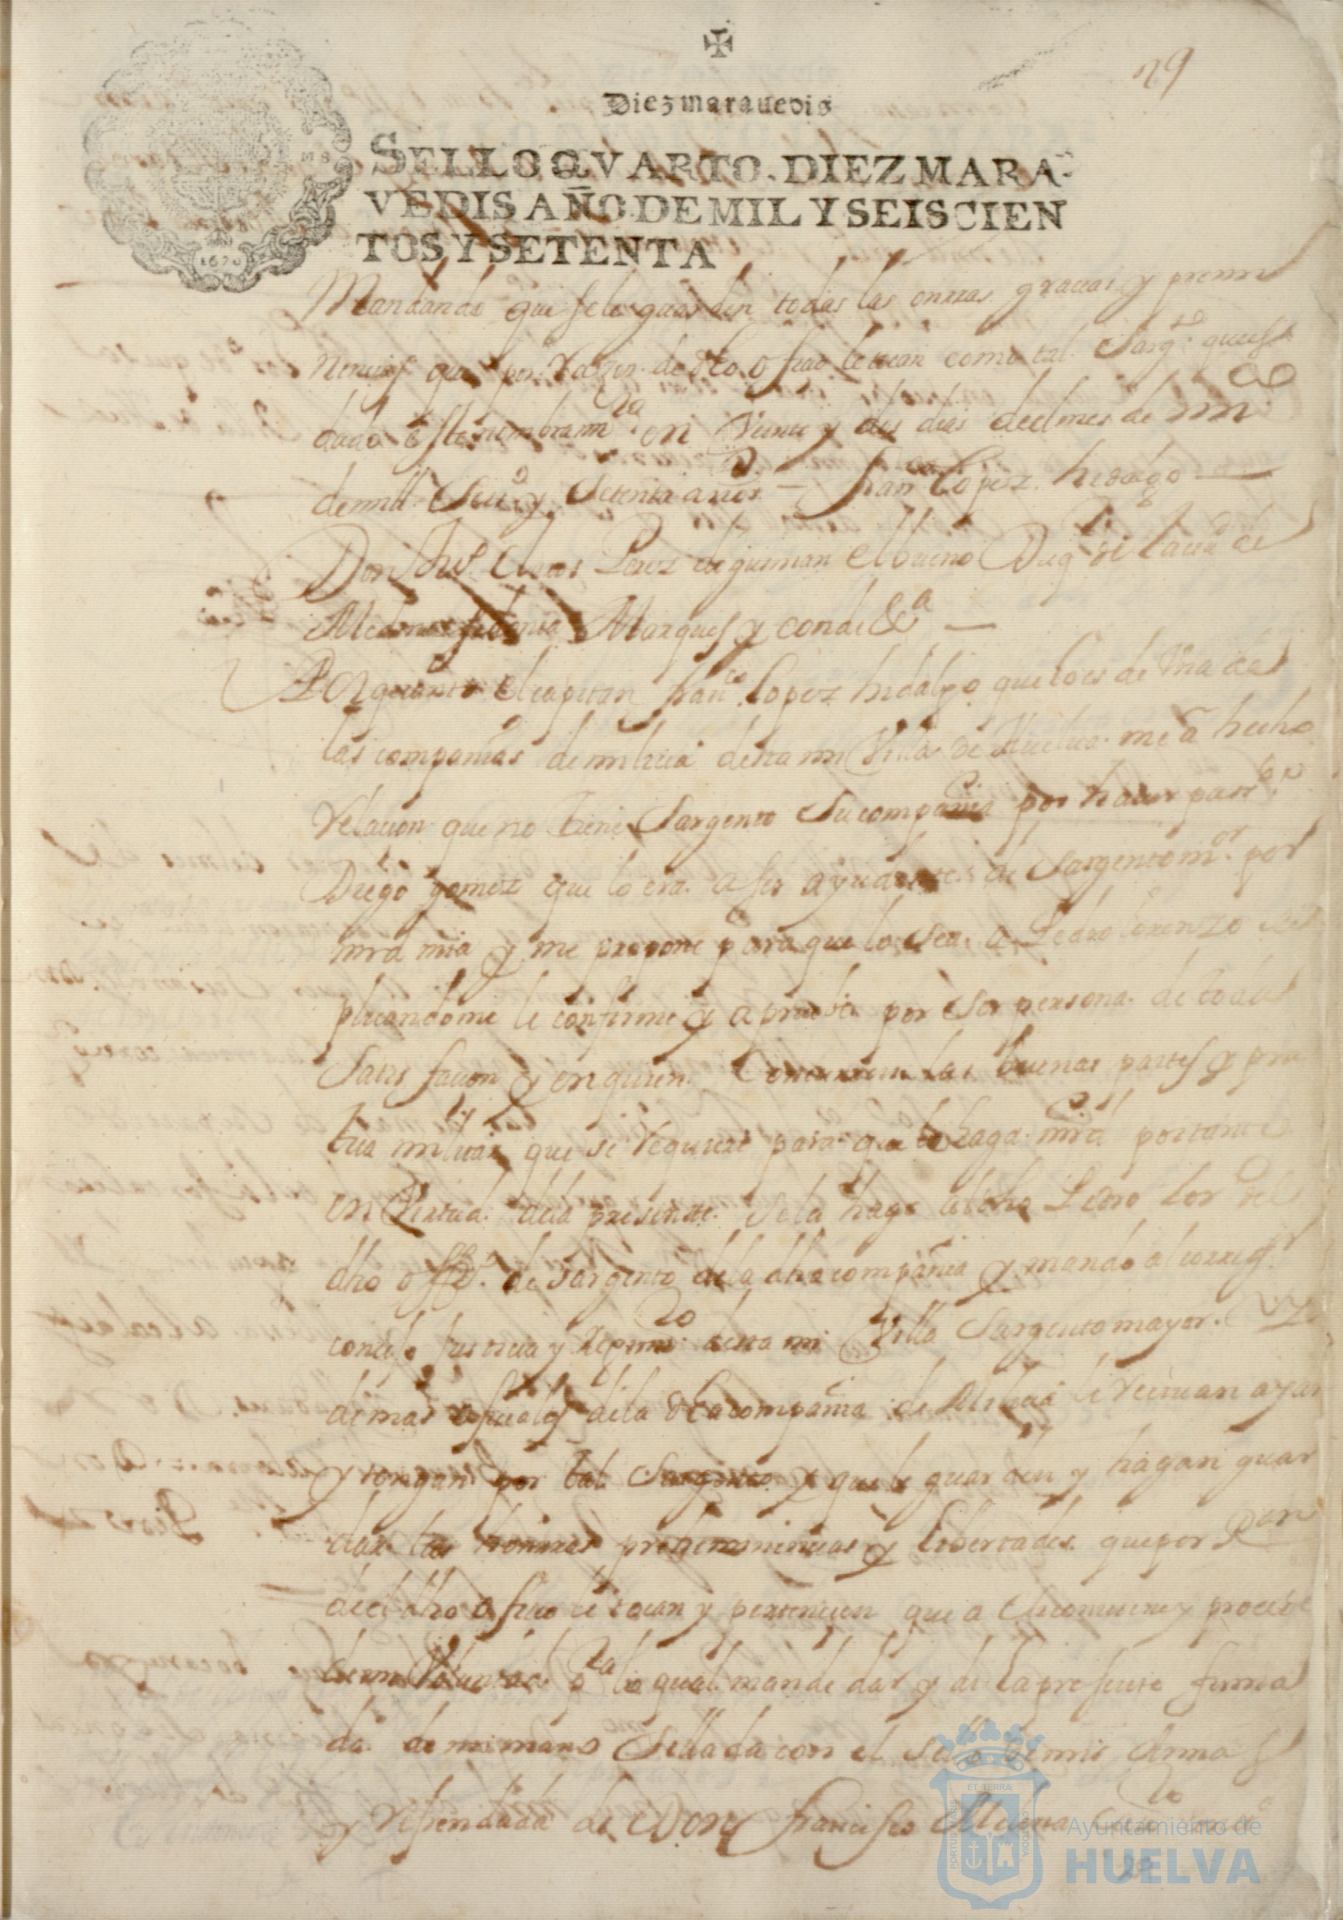 29
Diez maravedis
SELLO QVARTO. DIEZ MARA-
VEDIS AÑO DE MIL Y SEISCIEN
TOS Y SETENTA
1670
Mandando que se le guarden todas las onrras gracias y premi
nencias que por raçon de dho ofiçio le tocan como tal Sargto
dado este nombramto en Veinte y dos dias del mes de
de mill Seisos y Setenta años — Franco Lopez hidalgo —
Don Claros Perez de guzman el bueno Duq de la ciud de
Medina sidonia Marques y conde &a —
Por quanto el capitan Franco Lopez hidalgo que lo es de Una de
las compañias de milicia desta mi Villa de Huelva me a hecho
relacion que no tiene Sargento Su compañia por haver
Diego gomez que lo era a ser ayudante de Sargento mor por
mrd mia y me propone para que lo sea a Pedro Lorenzo
plicandome le confirme y apruebe por ser persona de toda
Satisfacion y en quien Concurren las buenas partes y pra
tica militar que se requiere para que le haga mrd por tanto
en Virtud dela presente Se la hago al dho Pedro Lor del
dho offo de Sargento dela dha compañia y mando al corregr
concejo Justicia y Regimto desta mi Villa Sargento mayor y
demas ofiçiales dela dha compañia de Milicia le reciuan ayan
y tengan por tal Sargento y que le guarden y hagan guar
dar las honrras preheminencias y Libertades que por raçon
del dho ofiçio le tocan y pertenecen que
es mi Voluntad pa lo qual mande dar y di la presente firma
da de mi mano Sellada con el Sello de mis Armas
y refrendada de Don Francisco
ET TERRAE
PORTUS MARIS
CUSTODIA
Ayuntamiento de
HUELVA